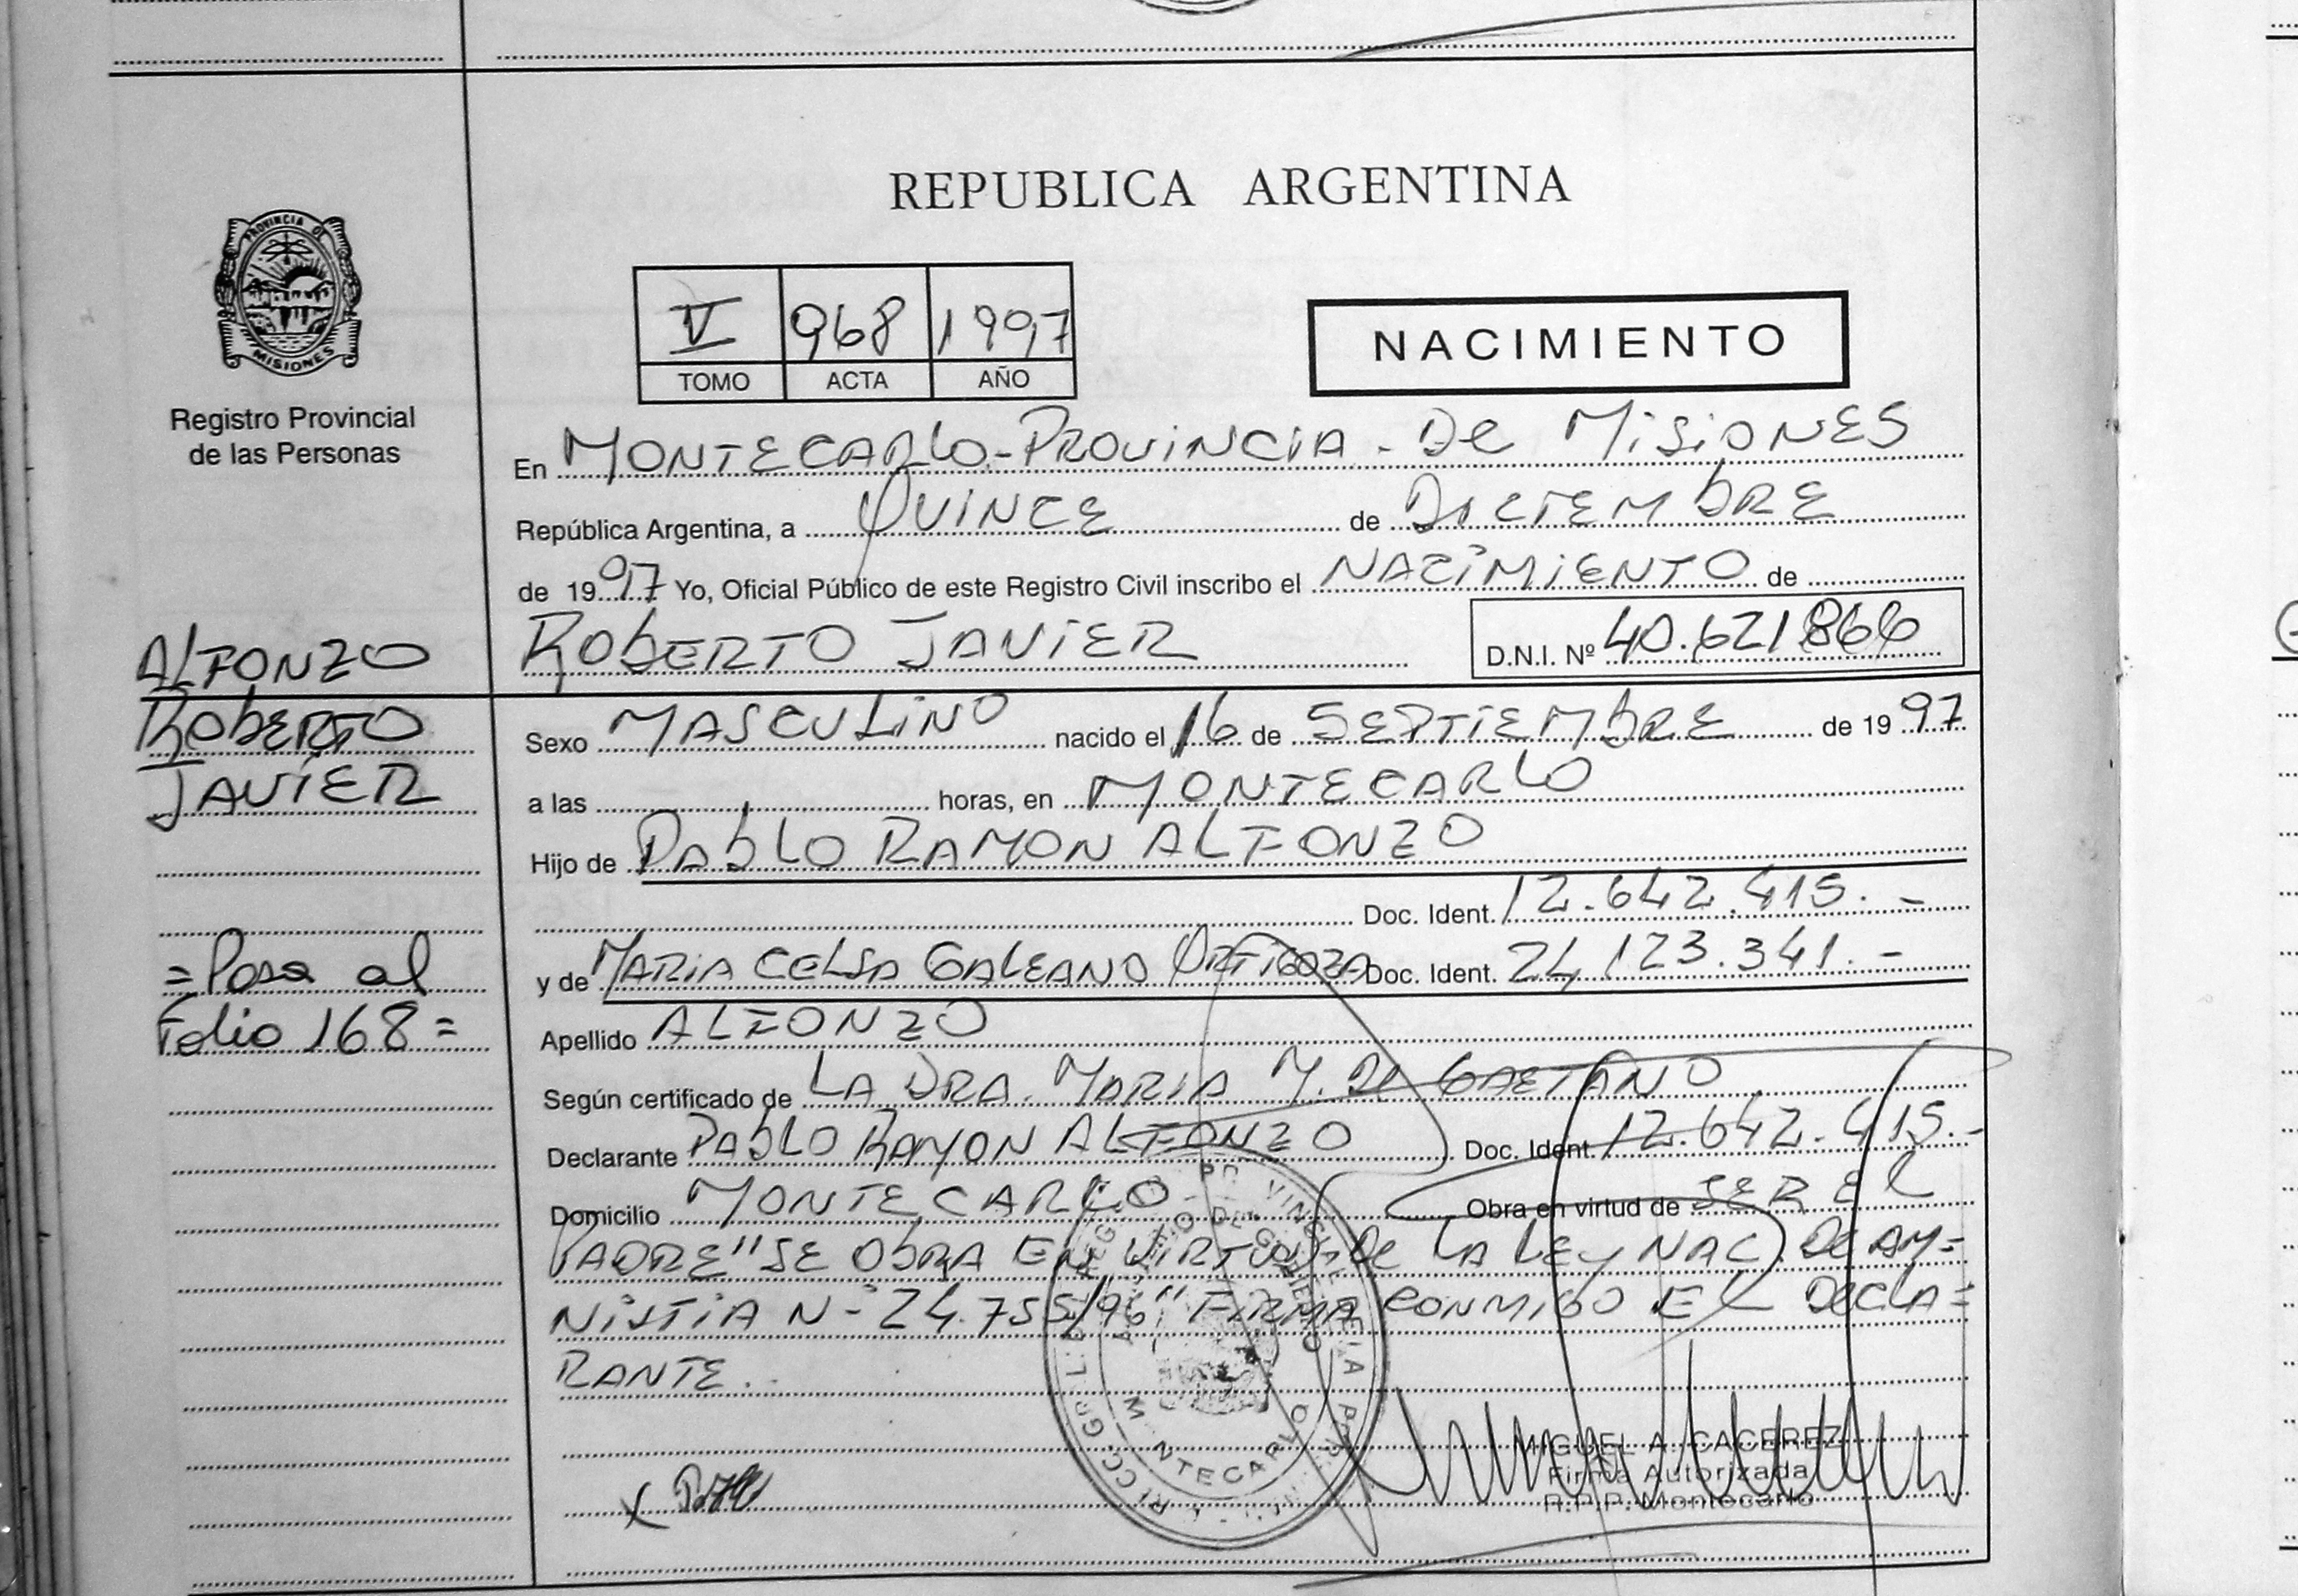 REPUBLICA ARGENTINA
PROVINCIA DE
MISIONES
Registro Provincial
de las Personas
V 968 1997
TOMO ACTA AÑO
NACIMIENTO
En MONTECARLO-PROVINCIA - De MISIONES
República Argentina, a QUINCE de DICIEMBRE
de 1997 Yo, Oficial Público de este Registro Civil inscribo el NACIMIENTO de
ROBERTO JAVIER D.N.I. Nº 40.621866
ALFONZO
ROBERTO
JAVIER
Sexo MASCULINO nacido el 16 de SEPTIEMBRE de 1997
a las horas, en MONTECARLO
Hijo de PABLO RAMON ALFONZO
Doc. Ident. 12.642.415.-
y de MARIA CELSA GALEANO ORTIGOZA Doc. Ident. 24.123.341.-
=Pasa al
Folio 168=
Apellido ALFONZO
Según certificado de LA DRA. MARIA M. De GAETANO
Declarante PABLO RAMON ALFONZO Doc. Ident. 12.642.415.-
Domicilio MONTECARLO Obra en virtud de SER El
PADRE "SE OBRA EN VIRTUD De LA LEY NAC. DE AM=
NISTIA N- 24.755/96" FIRMA CONMIGO EL DECLA=
RANTE.
MONTECARLO
MIGUEL A. CACEREZ
Firma Autorizada
R.P.P. Montecarlo